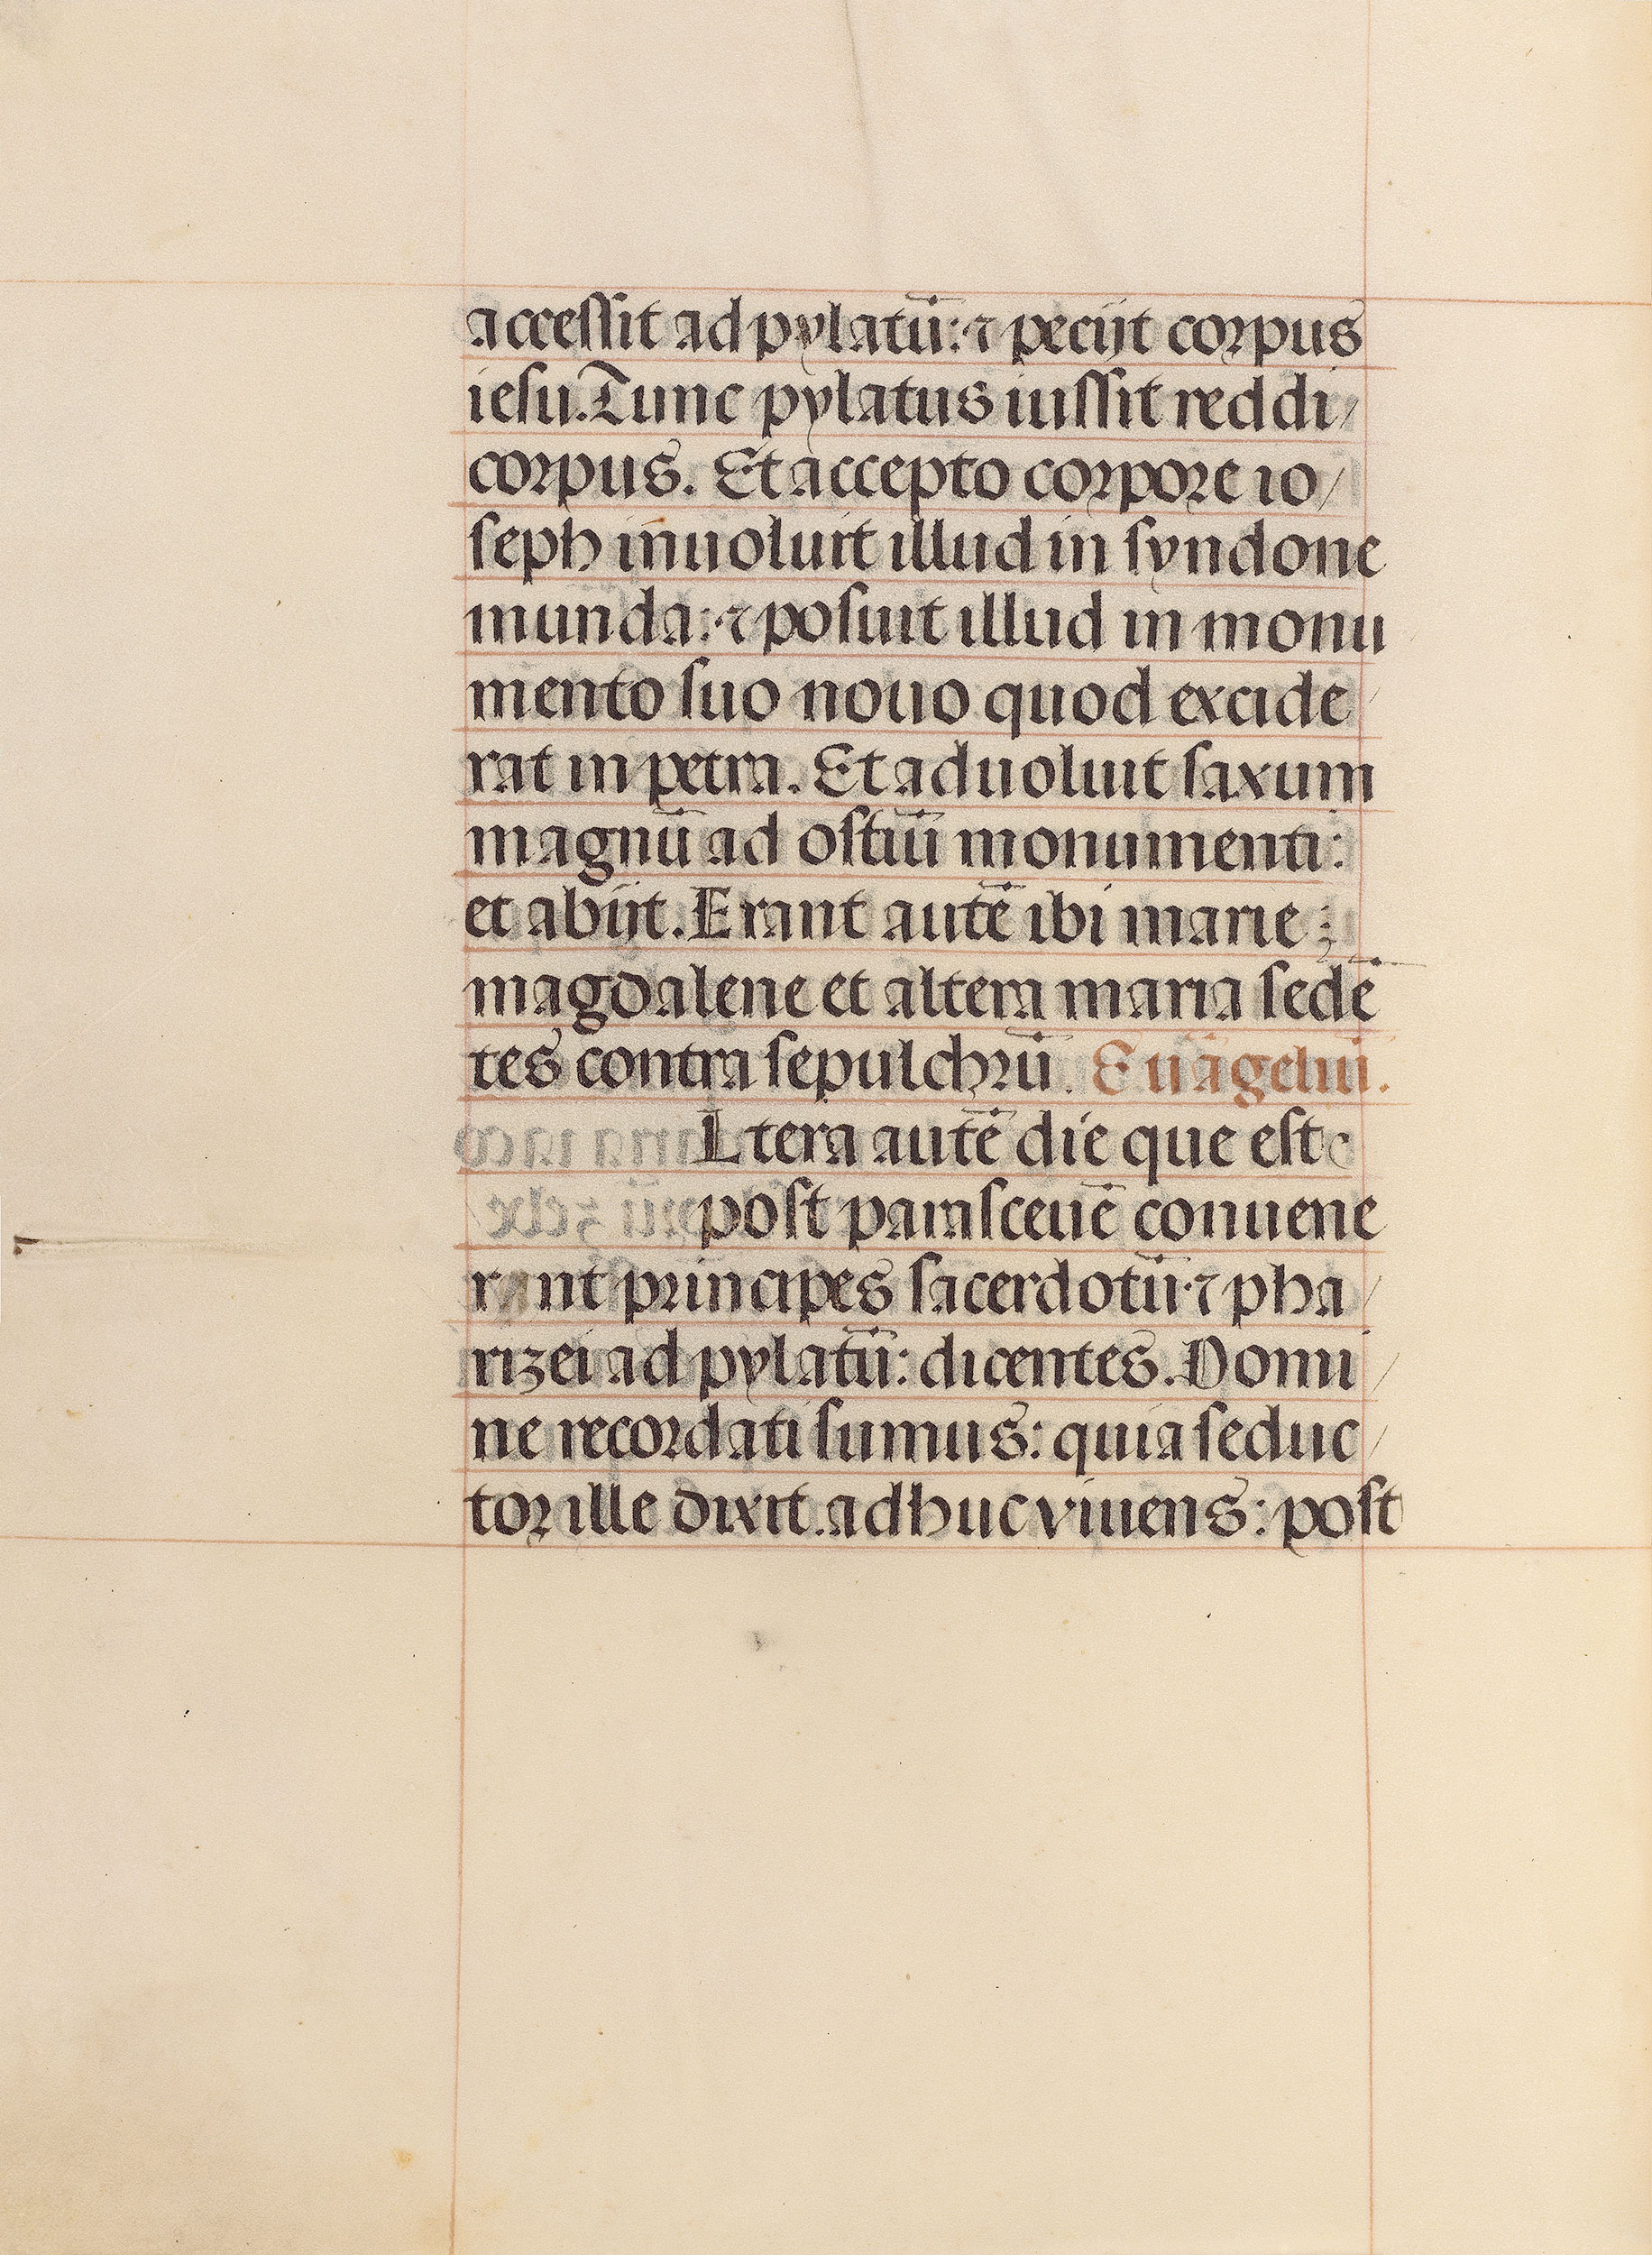 accessit ad pylatū: ⁊ pecijt corpus
iesu. Tunc pylatus iussit reddi/
corpus. Et accepto corpore io/
seph inuoluit illud in syndone
munda: ⁊ posuit illud in monu
mento suo nouo quod excide/
rat in petra. Et aduoluit saxum
magnū ad ostiū monumenti:
et abijt. Erant autē ibi marie
magdalene et altera maria sedē
tes contra sepulchrū. Euāgeliū.
Ltera autē die que est
post parasceuē conuene
rant principes sacerdotū ⁊ pha/
rizei ad pylatū: dicentes. Domi/
ne recordati sumus: quia seduc/
tor ille dixit. adhuc viuens: post